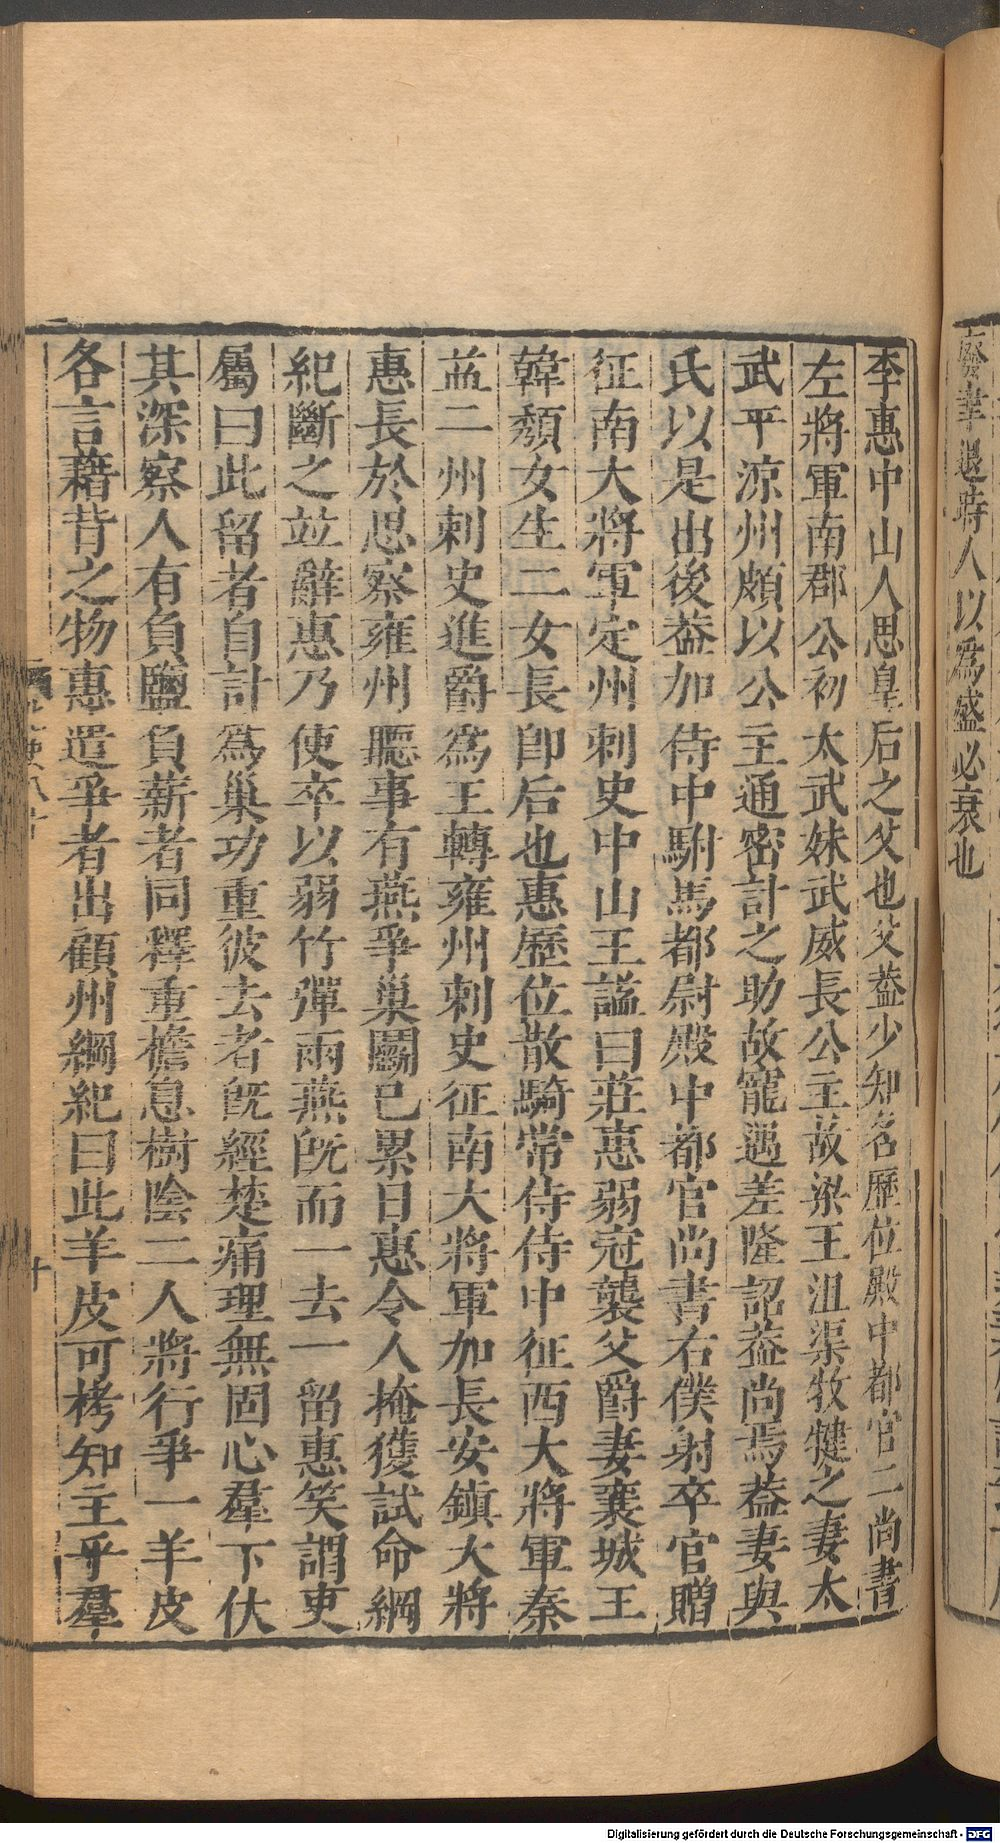 廢幸退時人以爲盛必衰也
李惠中山人思皇后之父也父蓋少知名歷位殿中都官二尚書
左將軍南郡公初太武妹武威長公主故梁王沮渠牧犍之妻太
武平涼州頗以公主通密計之助故寵遇差隆詔蓋尚焉蓋妻與
氏以是出後蓋加侍中駙馬都尉殿中都官尚書右僕射卒官贈
征南大將軍定州刺史中山王謚曰莊惠弱冠襲父爵妻襄城王
韓頹女生二女長卽后也惠歷位散騎常侍侍中征西大將軍秦
益二州刺史進爵爲王轉雍州刺史征南大將軍加長安鎮大將
惠長於思察雍州聽事有燕爭巢鬭已累日惠令人掩獲試命綱
紀斷之竝辭惠乃使卒以弱竹彈兩燕旣而一去一留惠笑謂吏
屬曰此留者自計爲巢功重彼去者旣經楚痛理無固心羣下伏
其深察人有負鹽負薪者同釋重檐息樹陰二人將行爭一羊皮
各言藉背之物惠遣爭者出顧州綱紀曰此羊皮可栲知主乎羣
Digitalisierung gefördert durch die Deutsche Forschungsgemeinschaft - DFG